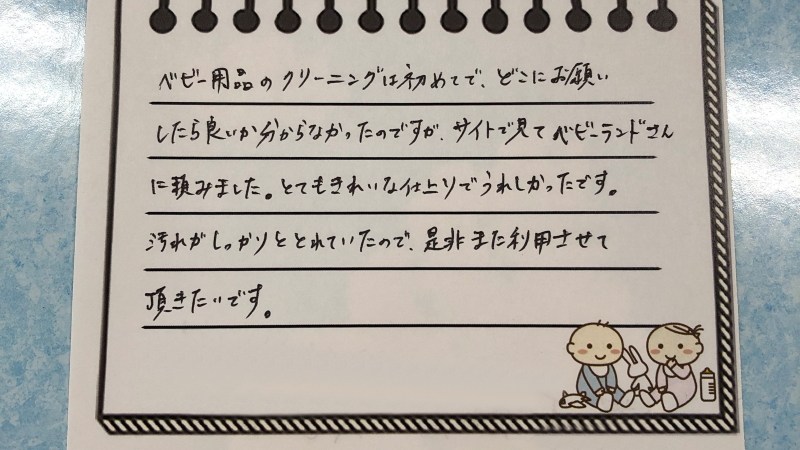 ベビー用品のクリーニングは初めてで、どこにお願い
したら良いか分からなかったのですが、サイトで見てベビーランドさん
に頼みました。とてもきれいな仕上りでうれしかったです。
汚れがしっかりととれていたので、是非また利用させて
頂きたいです。